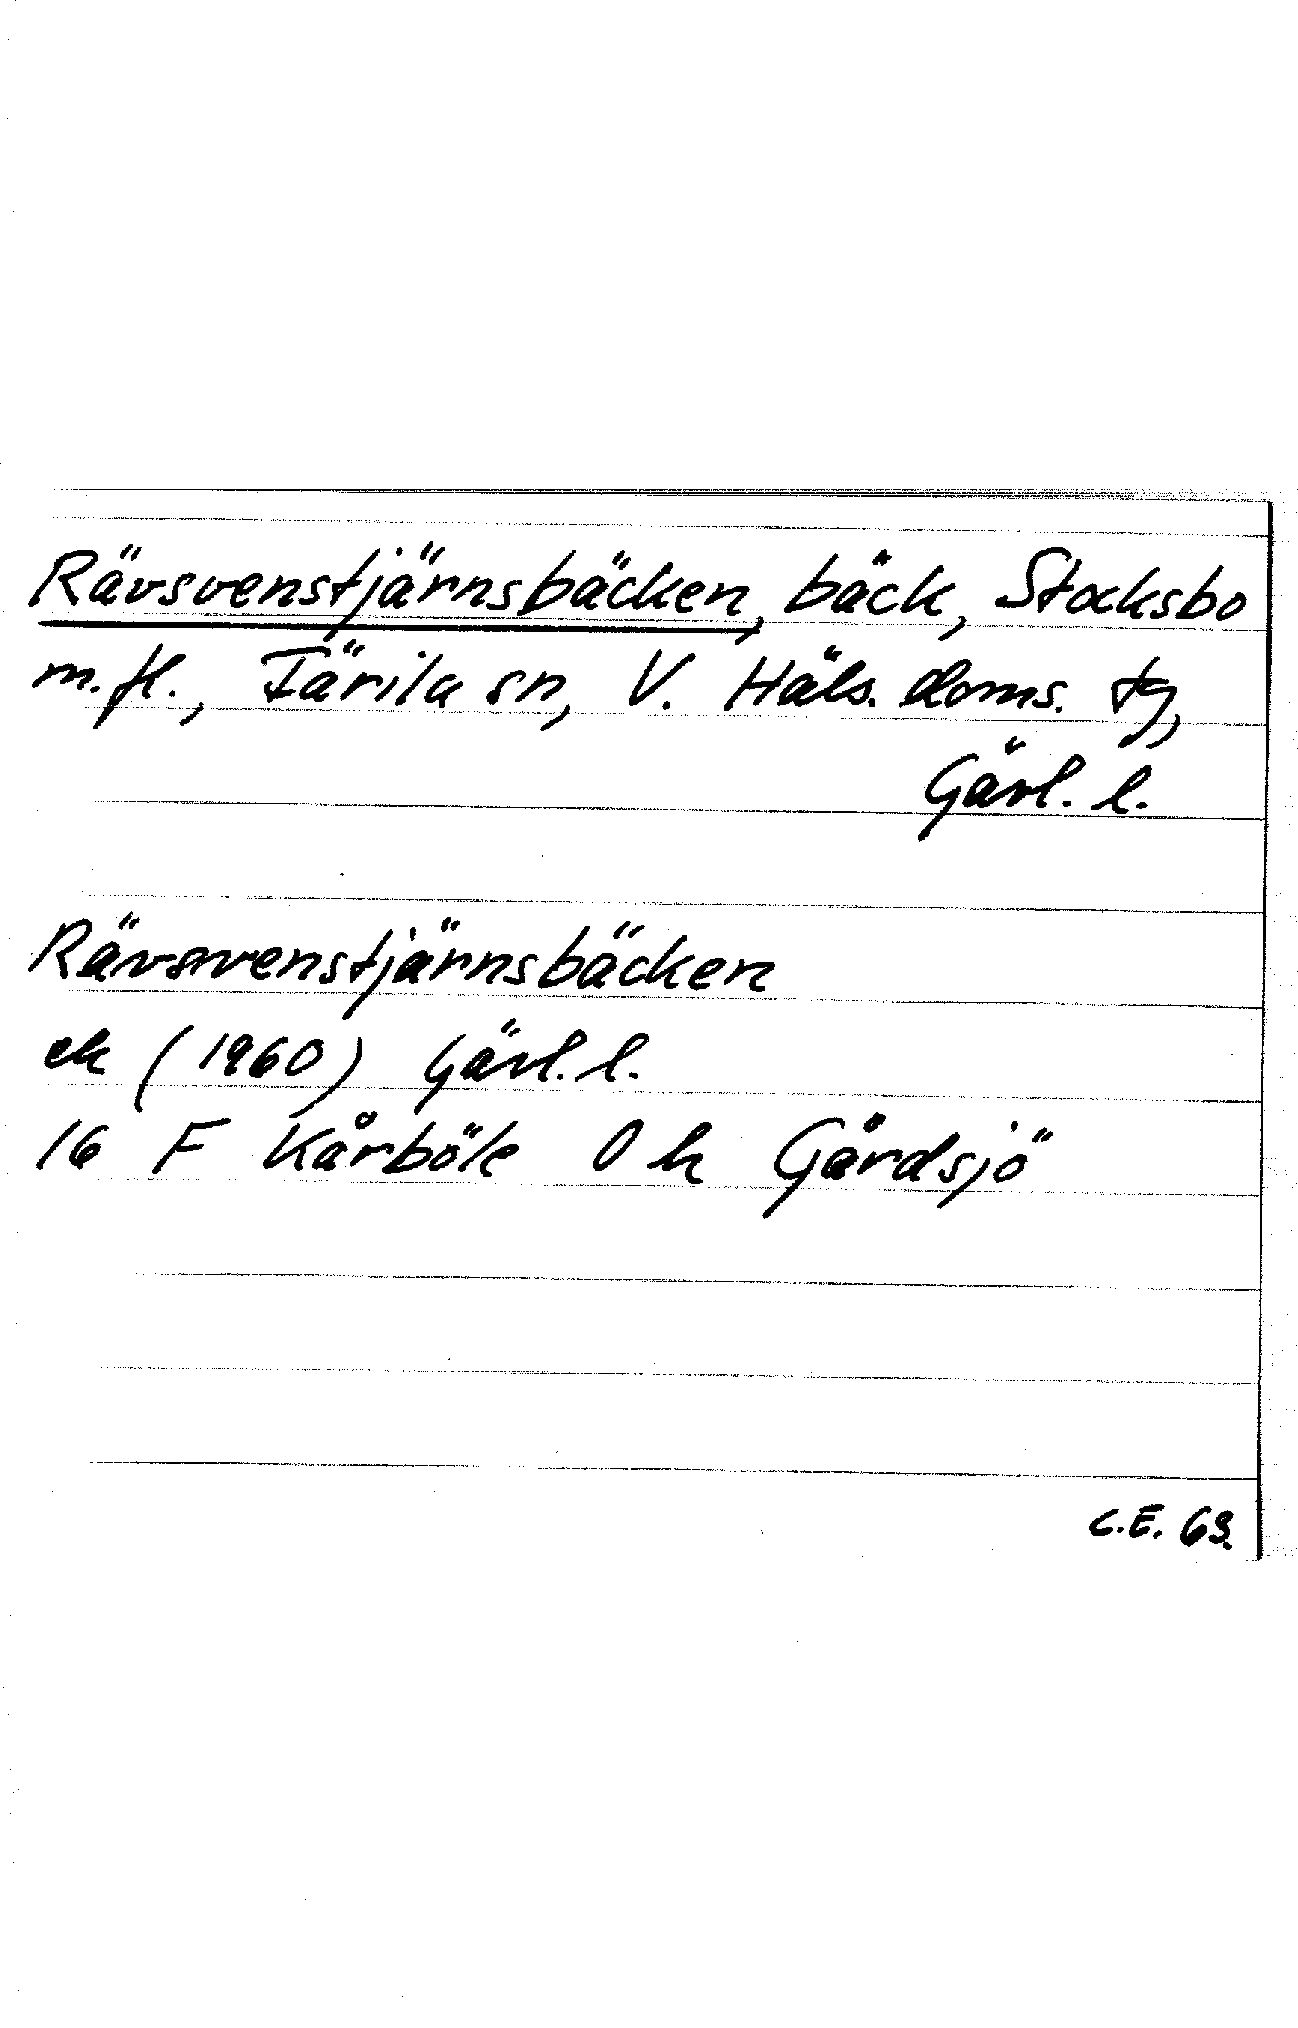 Rävsvenstjärnsbäcken, bäck, Stocksbo
m.fl., Färila sn, V. Häls. doms. tg,
Gävl. l.
Rävsvenstjärnsbäcken
ek (1960) Gävl. l.
16 F Kårböle 0 h Gårdsjö
C.E. 63.